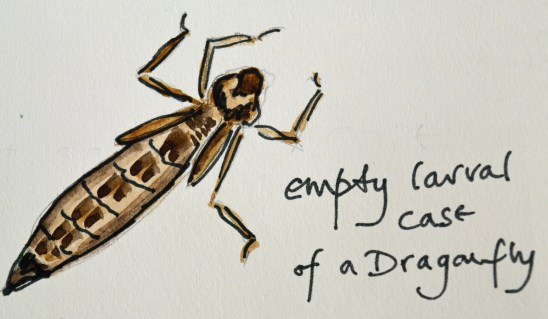 empty larval
case
of a Dragonfly